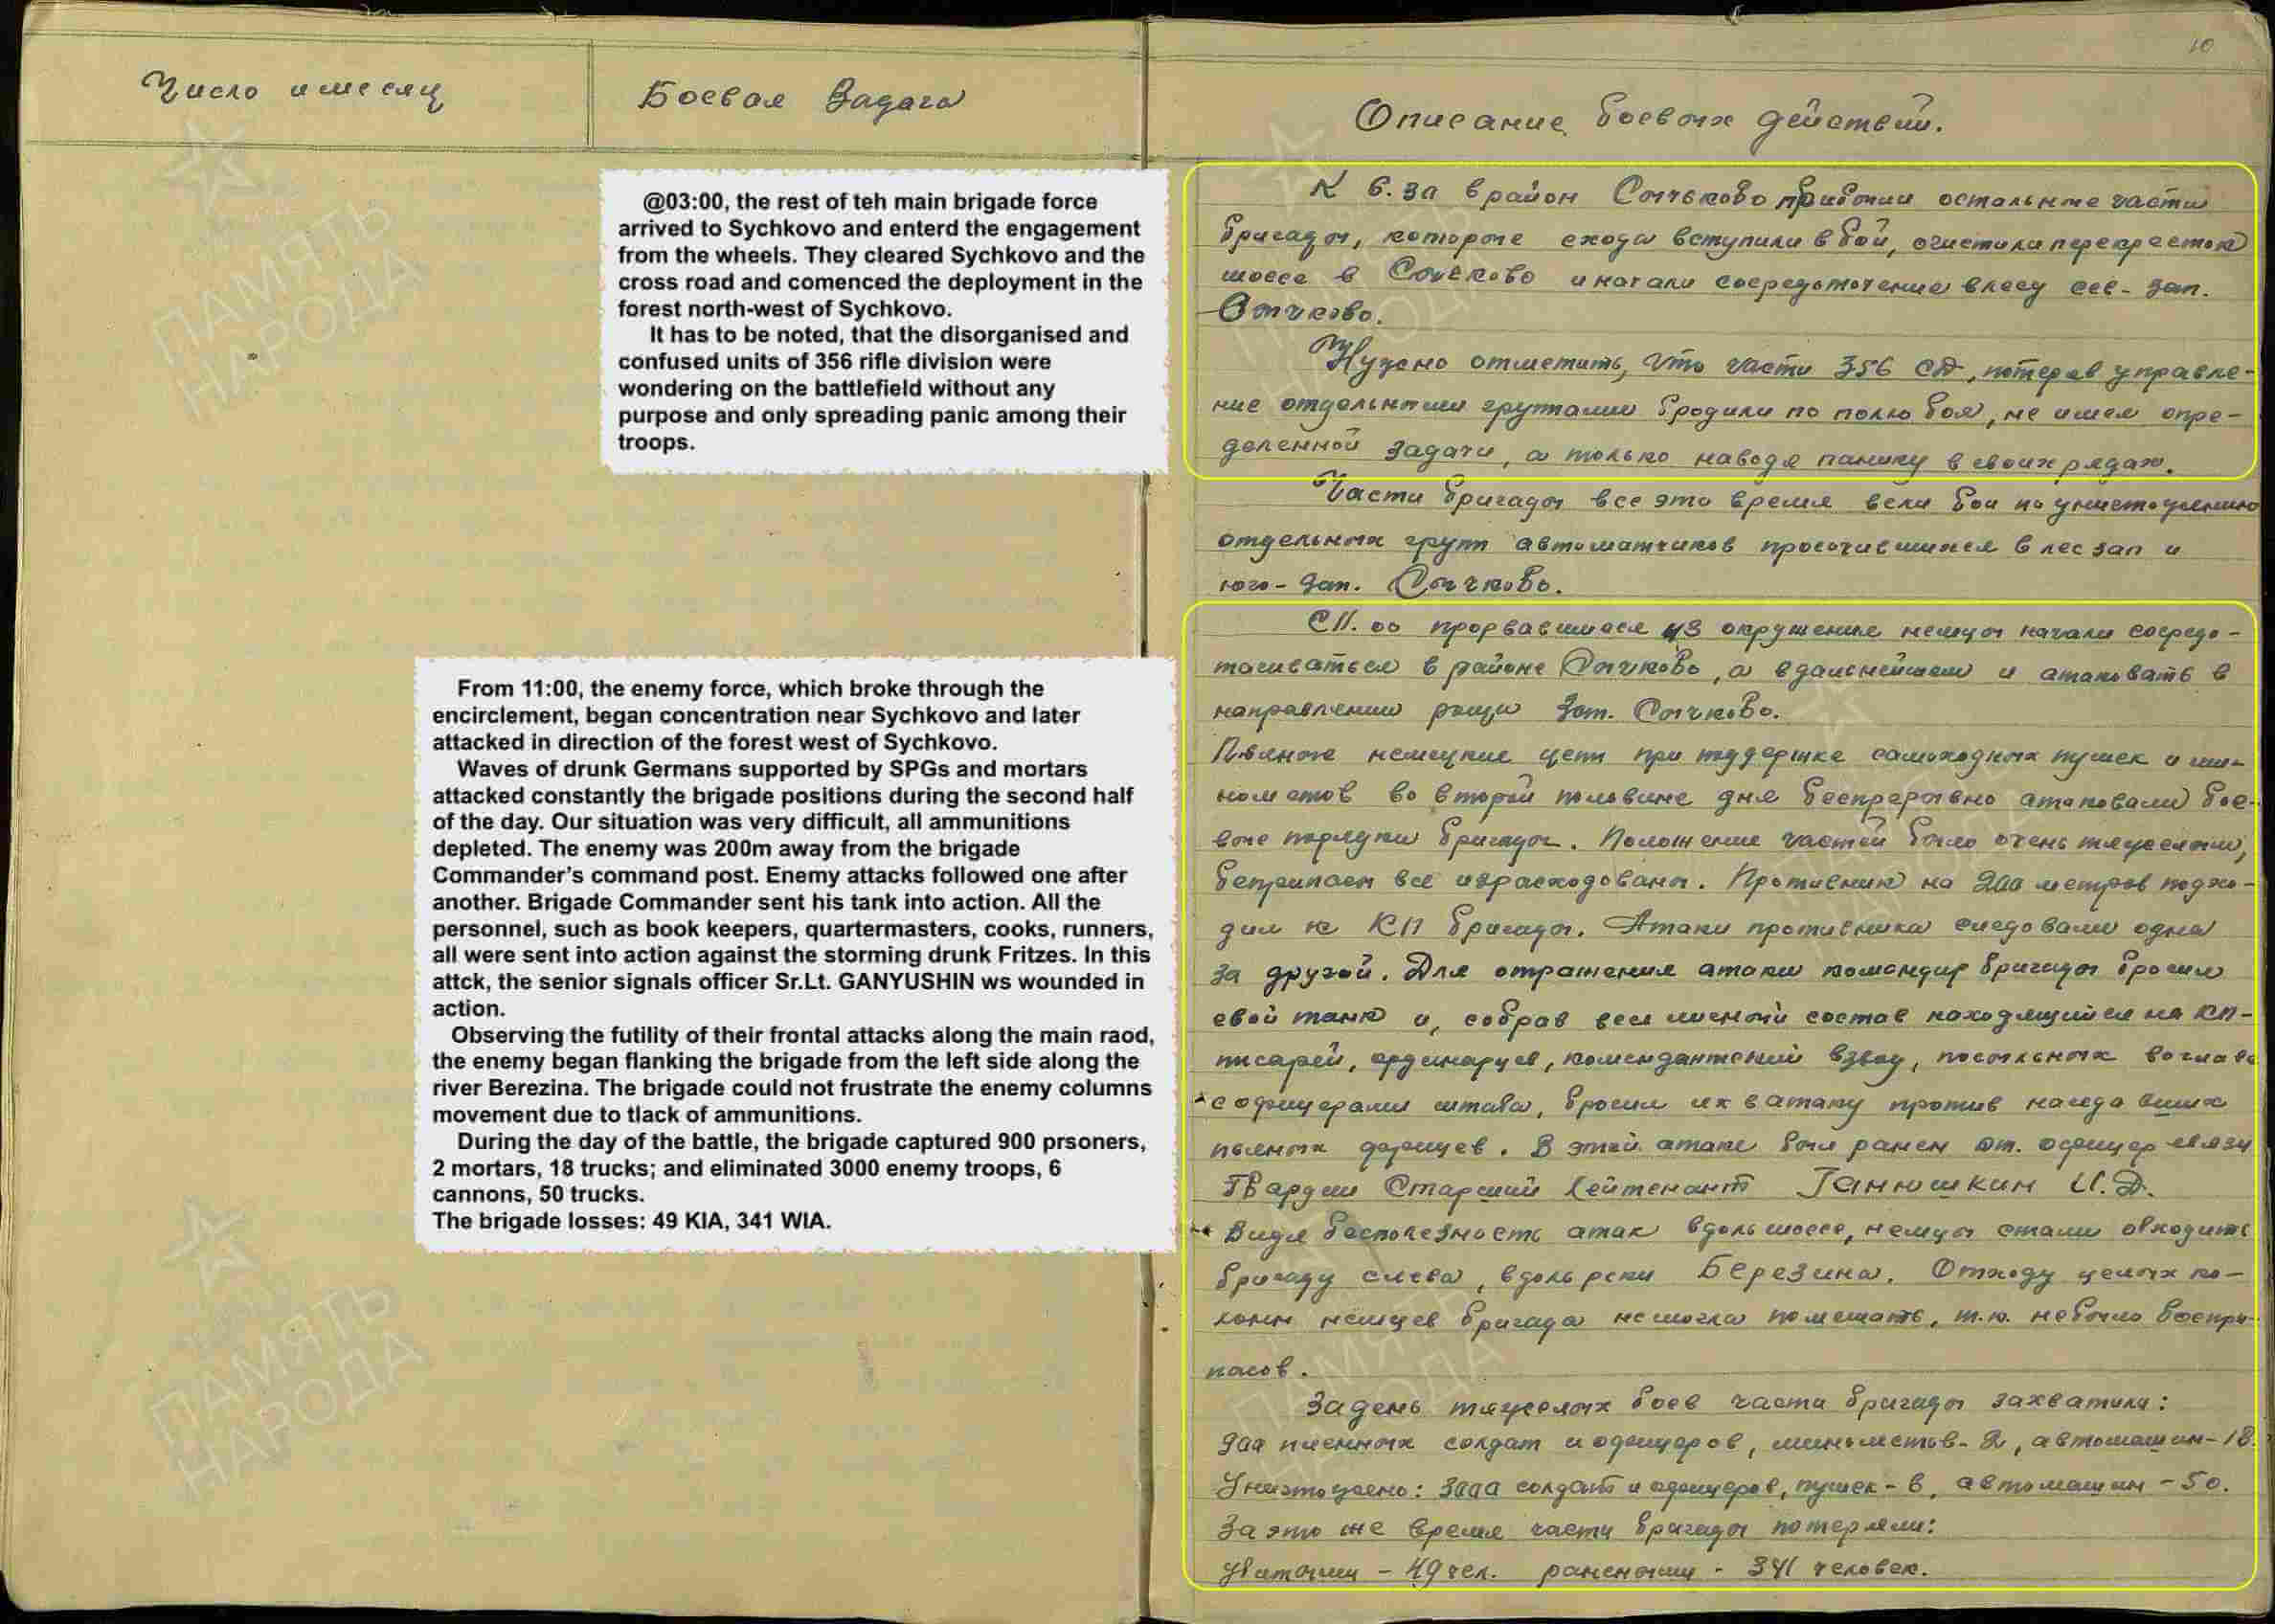 10
Число и месяц
Боевая Задача
Описание боевых действий.
@03:00, the rest of teh main brigade force
arrived to Sychkovo and enterd the engagement
from the wheels. They cleared Sychkovo and the
cross road and comenced the deployment in the
forest north-west of Sychkovo.
It has to be noted, that the disorganised and
confused units of 356 rifle division were
wondering on the battlefield without any
purpose and only spreading panic among their
troops.
From 11:00, the enemy force, which broke through the
encirclement, began concentration near Sychkovo and later
attacked in direction of the forest west of Sychkovo.
Waves of drunk Germans supported by SPGs and mortars
attacked constantly the brigade positions during the second half
of the day. Our situation was very difficult, all ammunitions
depleted. The enemy was 200m away from the brigade
Commander's command post. Enemy attacks followed one after
another. Brigade Commander sent his tank into action. All the
personnel, such as book keepers, quartermasters, cooks, runners,
all were sent into action against the storming drunk Fritzes. In this
attck, the senior signals officer Sr.Lt. GANYUSHIN ws wounded in
action.
Observing the futility of their frontal attacks along the main raod,
the enemy began flanking the brigade from the left side along the
river Berezina. The brigade could not frustrate the enemy columns
movement due to tlack of ammunitions.
During the day of the battle, the brigade captured 900 prsoners,
2 mortars, 18 trucks; and eliminated 3000 enemy troops, 6
cannons, 50 trucks.
The brigade losses: 49 KIA, 341 WIA.
К 6.30 в район Сычково прибыли остальные части
бригады, которые сходу вступили в бой, очистили перекресток
шоссе в Сычково и начали сосредоточение в лесу сев-зап.
Сычково.
Нужно отметить, что части 356 СД, потеряв управле-
ние отдельными группами бродили по полю боя, не имея опре-
деленной задачи, а только наводя панику в своих рядах.
Части бригады все это время вели бои по уничтожению
отдельных групп автоматчиков просочившихся в лес зап и
юго-зап. Сычково.
С 11.00 прорвавшиеся из окружения немцы начали сосредо-
тачиваться в районе Сычково, а в дальнейшем и атаковать в
направлении рощи зап. Сычково.
Пьяные немецкие цепи при поддержке самоходных пушек и ми-
нометов во второй половине дня беспрерывно атаковали бое-
вые порядки бригады. Положение частей было очень тяжелым,
боеприпасы все израсходованы. Противник на 200 метров подхо-
дил к КП бригады. Атаки противника следовали одна
за другой. Для отражения атаки командир бригады бросил
свой танк и, собрав весь личный состав находящийся на КП-
писарей, ординарцев, комендантский взвод, посыльных во главе
с офицерами штаба, бросил их в атаку против наседавших
пьяных фрицев. В этой атаке был ранен ст. офицер связи
Гвардии Старший Лейтенант Ганюшкин И.Д.
Видя бесполезность атак вдоль шоссе, немцы стали обходить
бригаду слева, вдоль реки Березина. Отходу целых ко-
лонн немцев бригада не могла помешать, т.к. не было боепри-
пасов.
За день тяжелых боев части бригады захватили:
900 пленных солдат и офицеров, минометов-2, автомашин-18.
Уничтожено: 3000 солдат и офицеров, пушек-6, автомашин-50.
За это же время части бригады потеряли:
убитыми - 49 чел. ранеными - 341 человек.
ПАМЯТЬ
НАРОДА
ПАМЯТЬ
НАРОДА
ПАМЯТЬ
НАРОДА